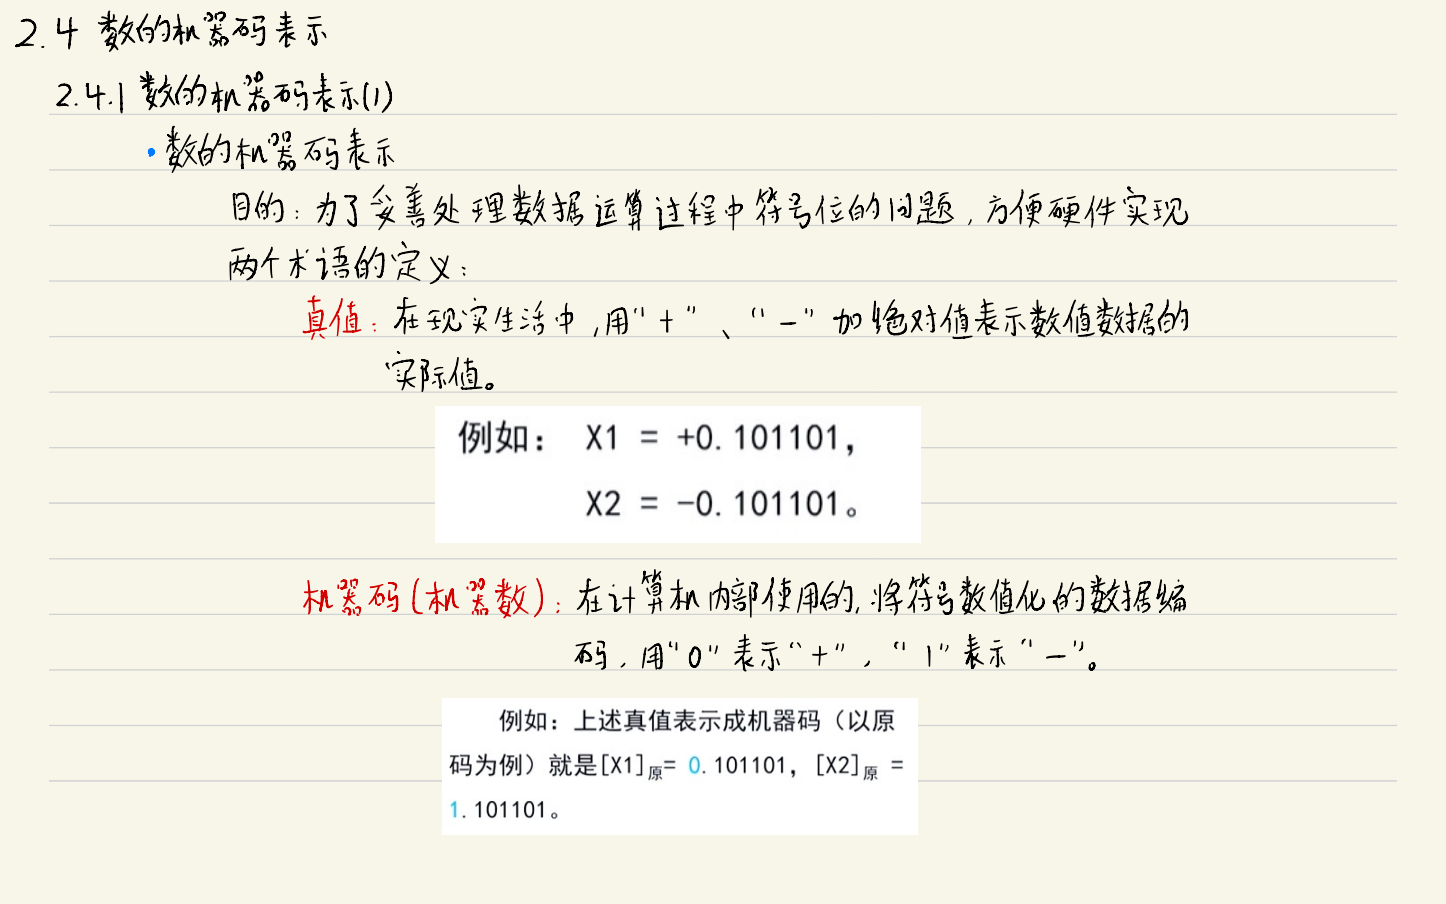 2.4 数的机器码表示
2.4.1 数的机器码表示(1)
·数的机器码表示
目的：为了妥善处理数据运算过程中符号位的问题，方便硬件实现
两个术语的定义：
真值：在现实生活中，用“+”、“-”加绝对值表示数值数据的
实际值。
例如： X1 = +0.101101，
X2 = -0.101101。
机器码(机器数)：在计算机内部使用的，将符号数值化的数据编
码，用“0”表示“+”，“1”表示“-”。
例如：上述真值表示成机器码（以原
码为例）就是[X1]原= 0.101101，[X2]原 =
1.101101。